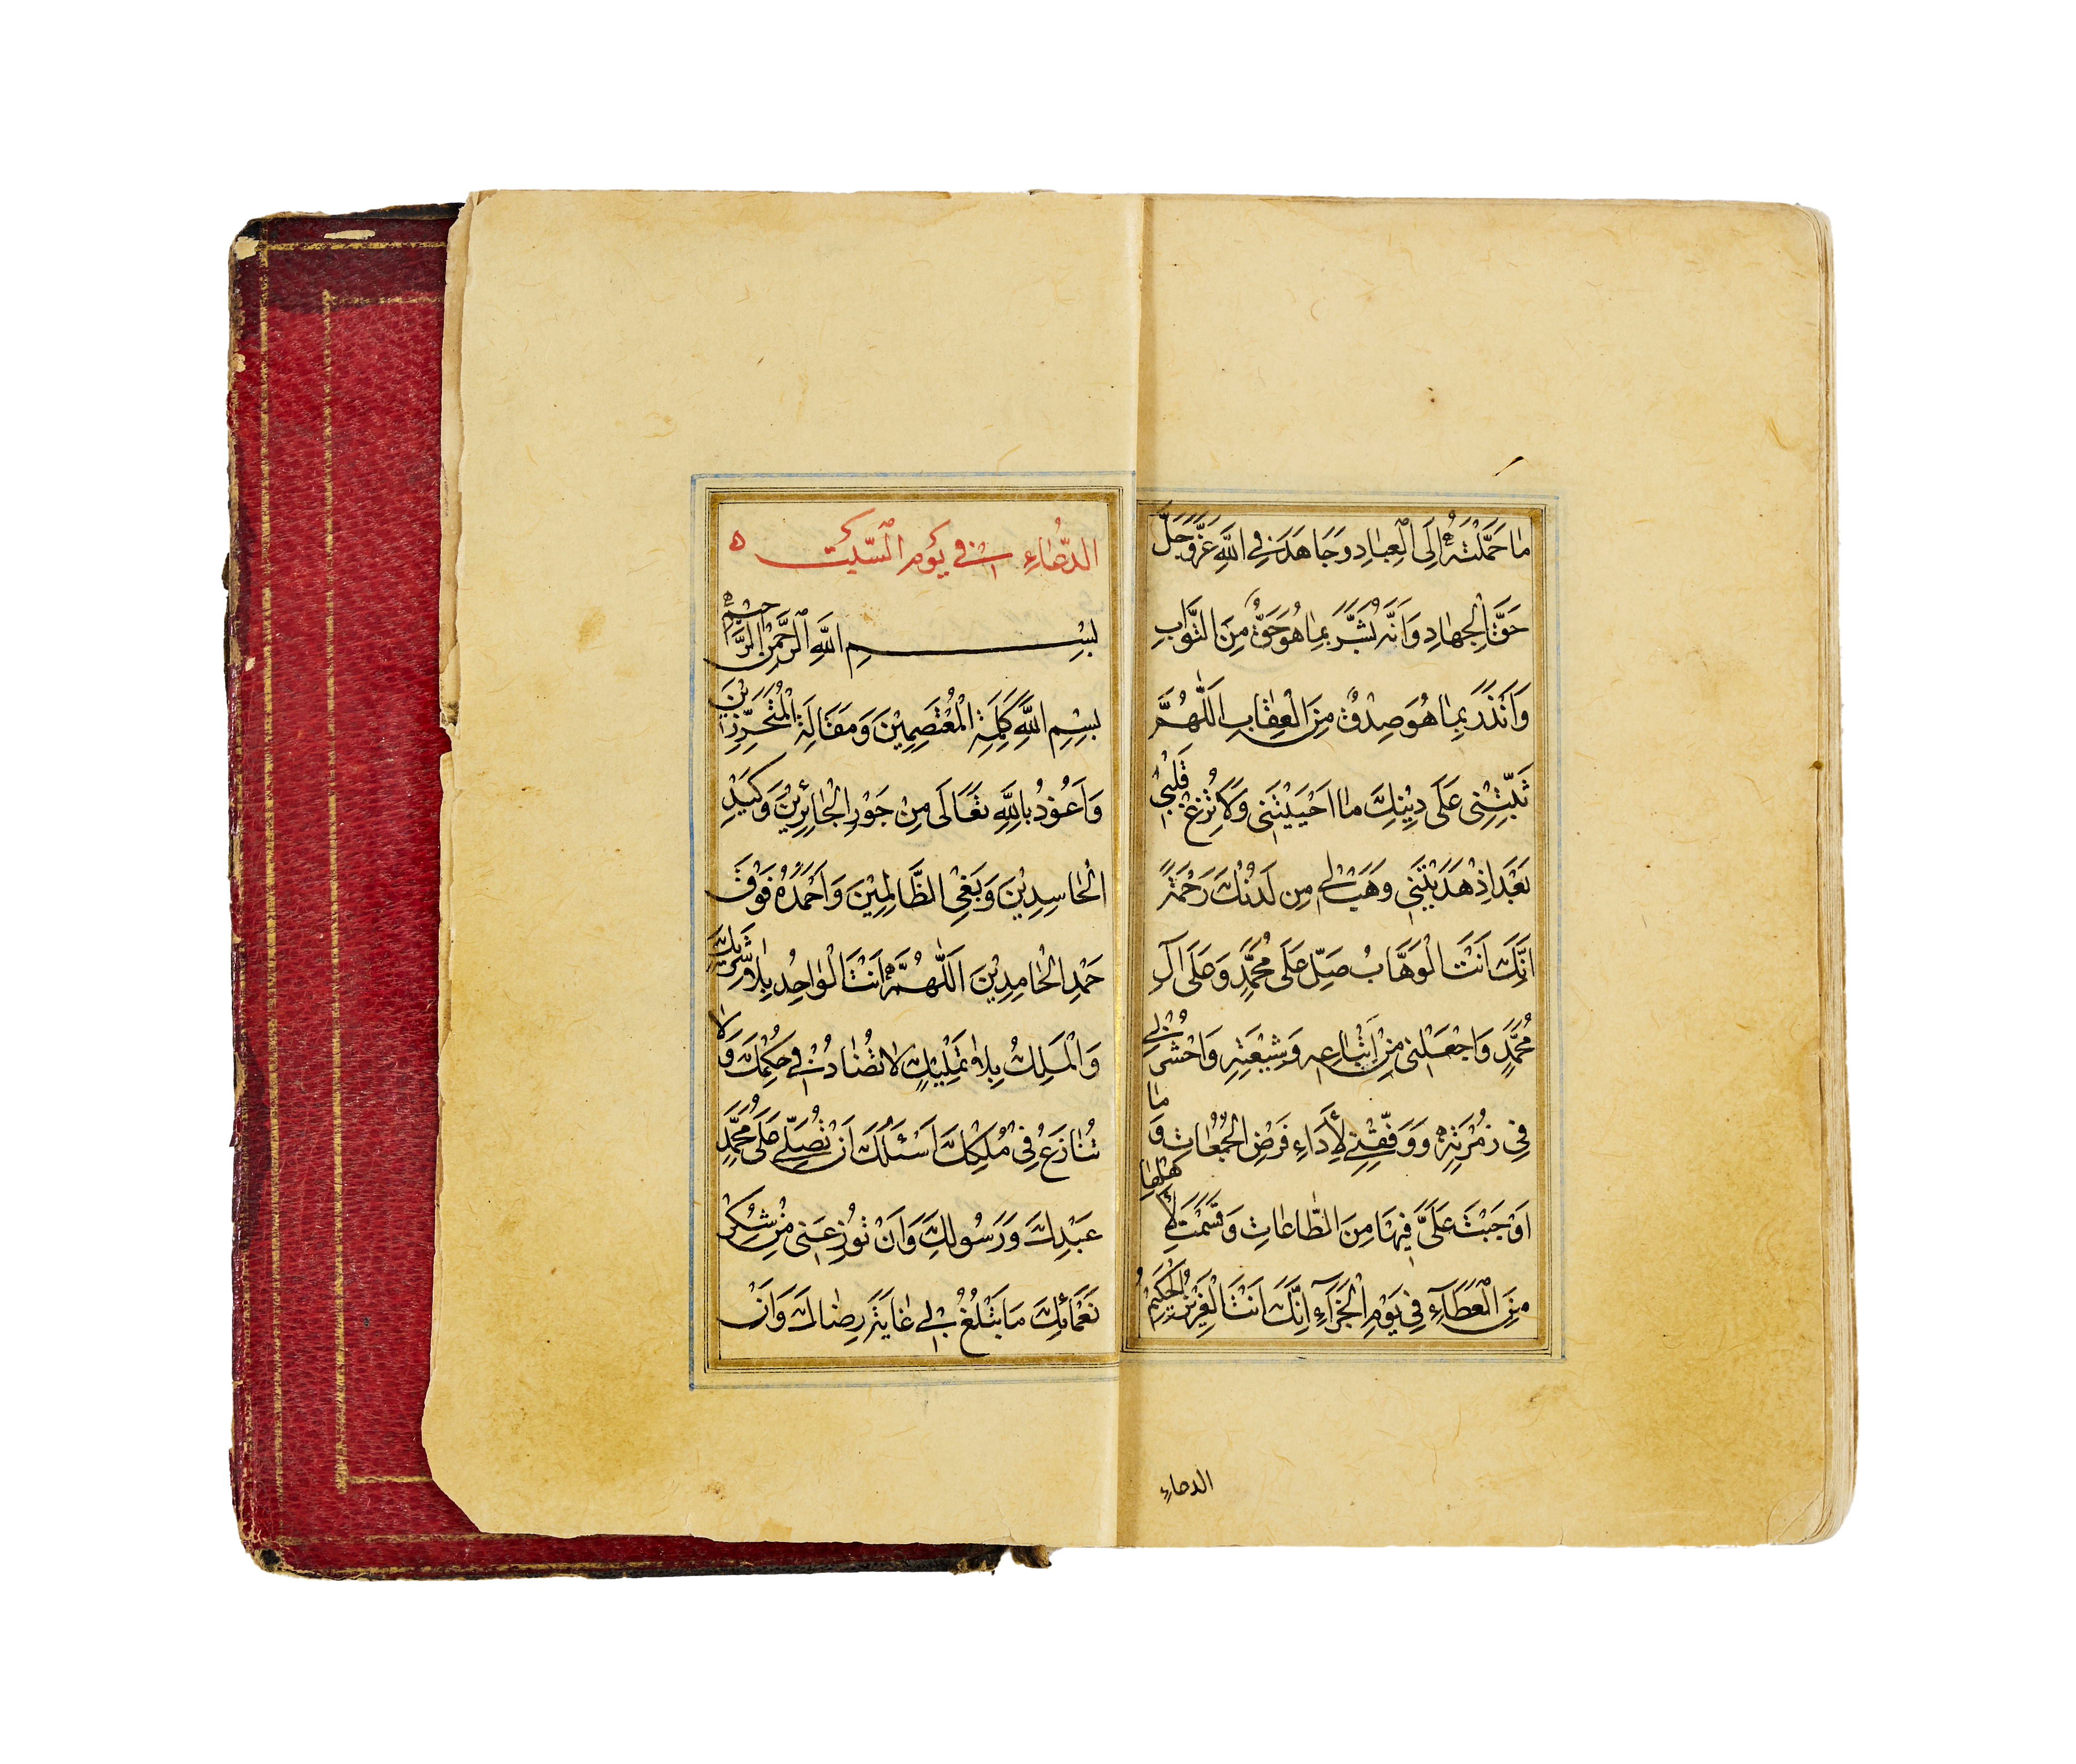 مَا حَمَّلْتَهُ اِلَى الْعِبَادِ وَجَاهَدَ فِي اللّٰهِ عَزَّ وَجَلَّ
حَقَّ الْجِهَادِ وَاَنَّهُ بَشَّرَ بِمَا هُوَ حَقٌّ مِنَ الثَّوَابِ
وَاَنْذَرَ بِمَا هُوَ صِدْقٌ مِنَ الْعِقَابِ اَللّٰهُمَّ
ثَبِّتْنِى عَلَى دِيْنِكَ مَا اَحْيَيْتَنِى وَلَا تُزِغْ قَلْبِى
بَعْدَ اِذْ هَدَيْتَنِى وَهَبْ لِى مِن لَدُنْكَ رَحْمَةً
اِنَّكَ اَنْتَ الْوَهَّابُ صَلِّ عَلَى مُحَمَّدٍ وَعَلَى آلِ
مُحَمَّدٍ وَاجْعَلْنِى مِنْ اَتْبَاعِهِ وَشِيْعَتِهِ وَاحْشُرْنِى
فِى زُمْرَتِهِ وَوَفِّقْنِى لِأَدَاءِ فَرْضِ الْجُمُعَاتِ وَمَا
اَوْجَبْتَ عَلَىَّ فِيْهَا مِنَ الطَّاعَاتِ وَقَسَمْتَ لِأَهْلِهَا
مِنَ الْعَطَآءِ فِى يَوْمِ الْجَزَآءِ اِنَّكَ اَنْتَ الْعَزِيْزُ الْحَكِيْمُ
الدعاء
الدُّعَاءِ فى يَوم السَّبت ۵
بِسْمِ اللّٰهِ الرَّحْمٰنِ الرَّحِيْمِ
بِسْمِ اللّٰهِ كَلِمَةِ الْمُعْتَصِمِيْنَ وَمَقَالَةِ الْمُتَحَرِّزِيْنَ
وَاَعُوْذُ بِاللّٰهِ تَعَالَى مِنْ جَوْرِ الْجَائِرِيْنَ وَكَيْدِ
الْحَاسِدِيْنَ وَبَغْىِ الظَّالِمِيْنَ وَاَحْمَدُهُ فَوْقَ
حَمْدِ الْحَامِدِيْنَ اَللّٰهُمَّ اَنْتَ الْوَاحِدُ بِلَا شَرِيْكٍ
وَالْمَلِكُ بِلَا تَمْلِيْكٍ لَا تُضَادُّ فِى حُكْمِكَ وَلَا
تُنَازَعُ فِى مُلْكِكَ اَسْئَلُكَ اَنْ تُصَلِّىَ عَلَى مُحَمَّدٍ
عَبْدِكَ وَرَسُولِكَ وَاَنْ تُوْزِعَنِى مِنْ شُكْرِ
نَعْمَائِكَ مَا تَبْلُغُ بِى غَايَةَ رِضَاكَ وَاَنْ